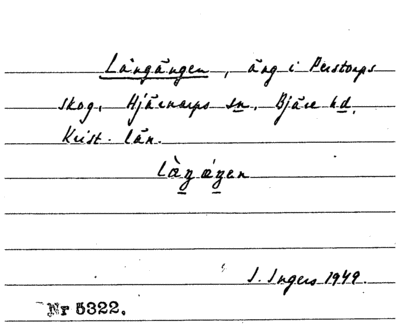 Långängen, äng i Perstorps
skog, Hjärnarps sn, Bjäre hd,
Krist. län.
I. Ingers 1949.
Nr 5322.